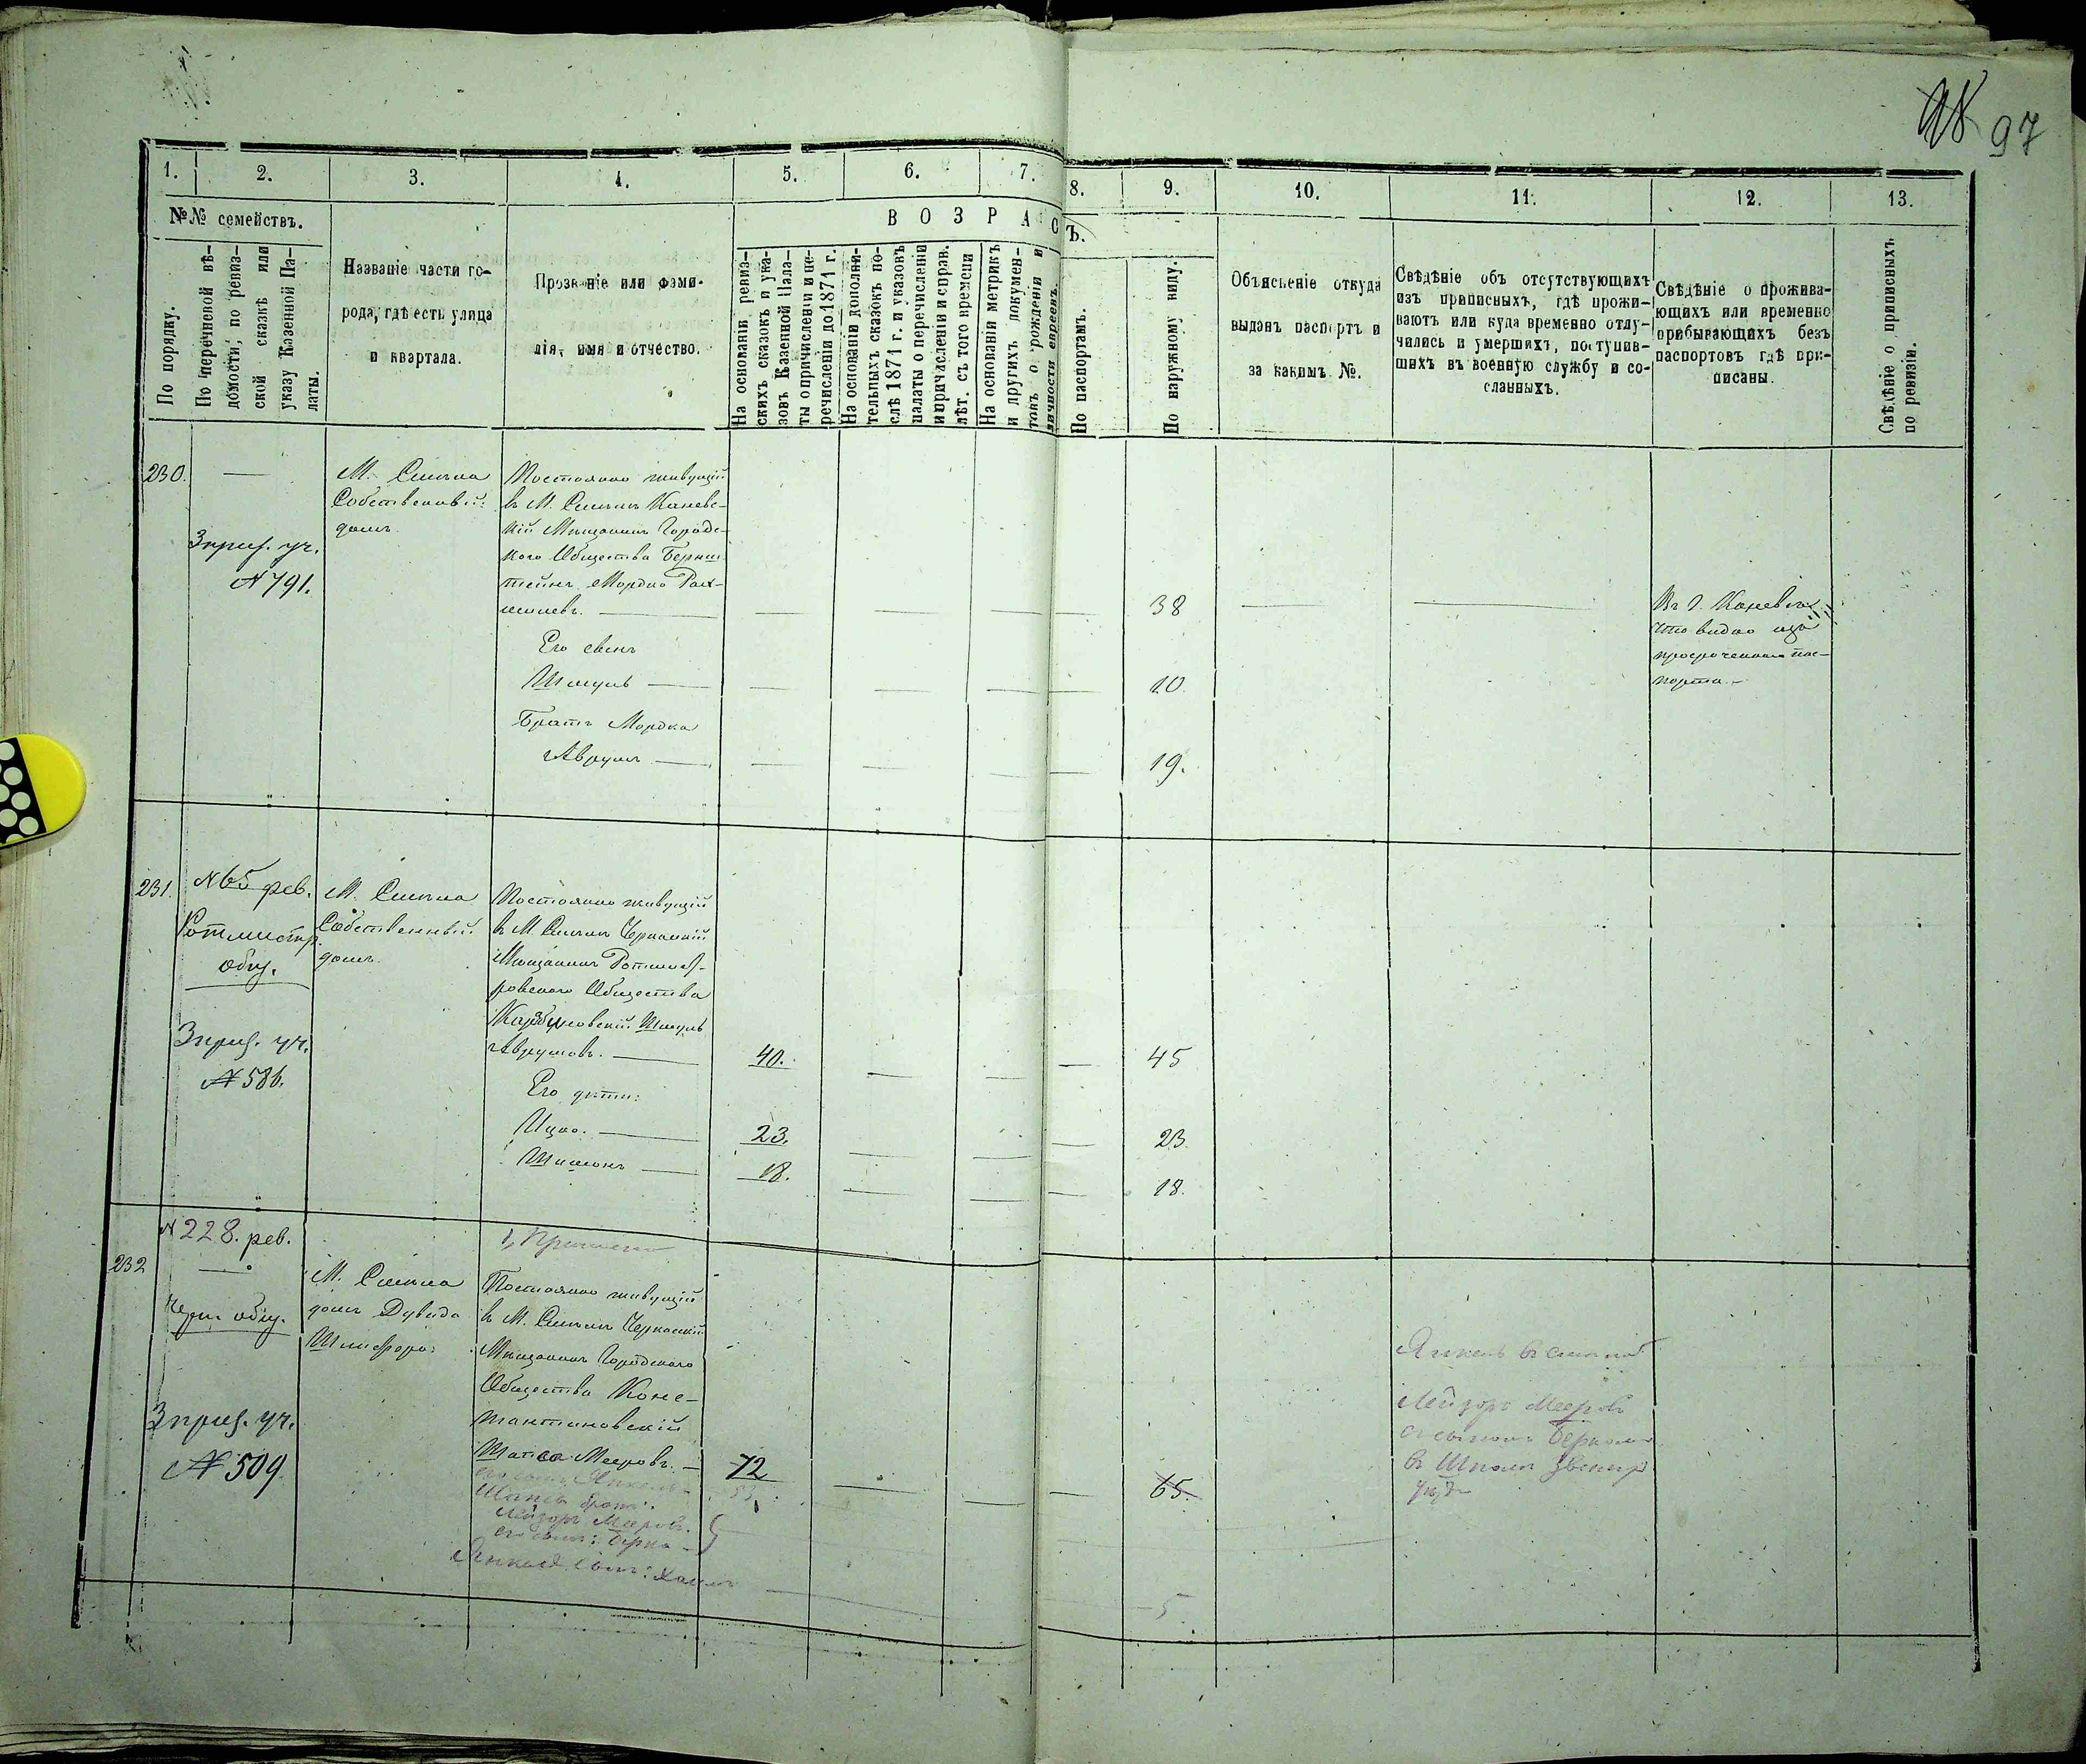 97
1.
2.
3.
4.
5.
6.
7.
8.
9.
10.
11.
12.
13.
№№ семействъ.
По порядку.
По перечневой вѣ-
домости, по ревиз-
ской сказкѣ или
указу Казенной Па-
латы.
Названіе части го-
рода, гдѣ есть улица
и квартала.
Прозваніе или фами-
лія, имя и отчество.
ВОЗРАС
Ъ.
На основаніи ревиз-
скихъ сказокъ и ука-
зовъ Казенной Пала-
ты о причисленіи и пе-
речисленіи до 1871 г.
На основаніи дополни-
тельныхъ сказокъ по-
слѣ 1871 г. и указовъ
палаты о перечисленіи
и причисленіи и справ.
лѣт. съ того времени
На основаніи метрикъ
и другихъ докумен-
товъ о рожденіи и
личности евреевъ.
По паспортамъ.
По наружному виду.
Объясненіе откуда
выданъ паспортъ и
за какимъ №.
Свѣдѣніе объ отсутствующихъ
изъ приписныхъ, гдѣ прожи-
ваютъ или куда временно отлу-
чились и умершихъ, поступив-
шихъ въ военную службу и со-
сланныхъ.
Свѣдѣніе о прожива-
ющихъ или временно
прибывающихъ безъ
паспортовъ гдѣ при-
писаны.
Свѣдѣніе о приписныхъ
по ревизіи.
230.
3 приз. уч.
№ 791.
М. Смѣла
Собственный
домъ.
Постоянно живущій
въ М. Смѣлѣ Каневс-
кій Мѣщанинъ Городс-
кого Общества Берни-
тейнъ Мордко Рах-
миліевъ.
38
Его сынъ
Шмуль
10
Братъ Мордка
Аврумъ
19.
Въ Г. Каневѣ
что видно изъ
просроченнаго пас-
порта.
231.
№ 65 рев.
Ротмистр.
общ.
3 приз. уч.
№ 586.
М. Смѣла
Собственный
домъ.
Постоянно живущій
въ М. Смѣлѣ Черкаскій
Мѣщанинъ Ротмист-
ровского Общества
Шмуль
Аврумовъ.
40.
45
Его дѣти:
Ицко.
23.
23.
Шимонъ
18.
18.
№ 228. рев.
232
Черк. общ.
3 приз. уч.
№ 509.
М. Смѣла
домъ Дувида
Шлифера
Постоянно живущій
въ М. Смѣлѣ Черкаскій
Мѣщанинъ Городского
Общества Конс-
тантиновскій
Шапса Мееровъ.
72
65.
его сынъ Янкель
Шапса братъ:
Лейзоръ Мееровъ.
его сынъ: Берко
Янкеля сынъ: Хаимъ
5
Лейзоръ Мееровъ
съ сыномъ Беркомъ
въ Шполѣ Звениг